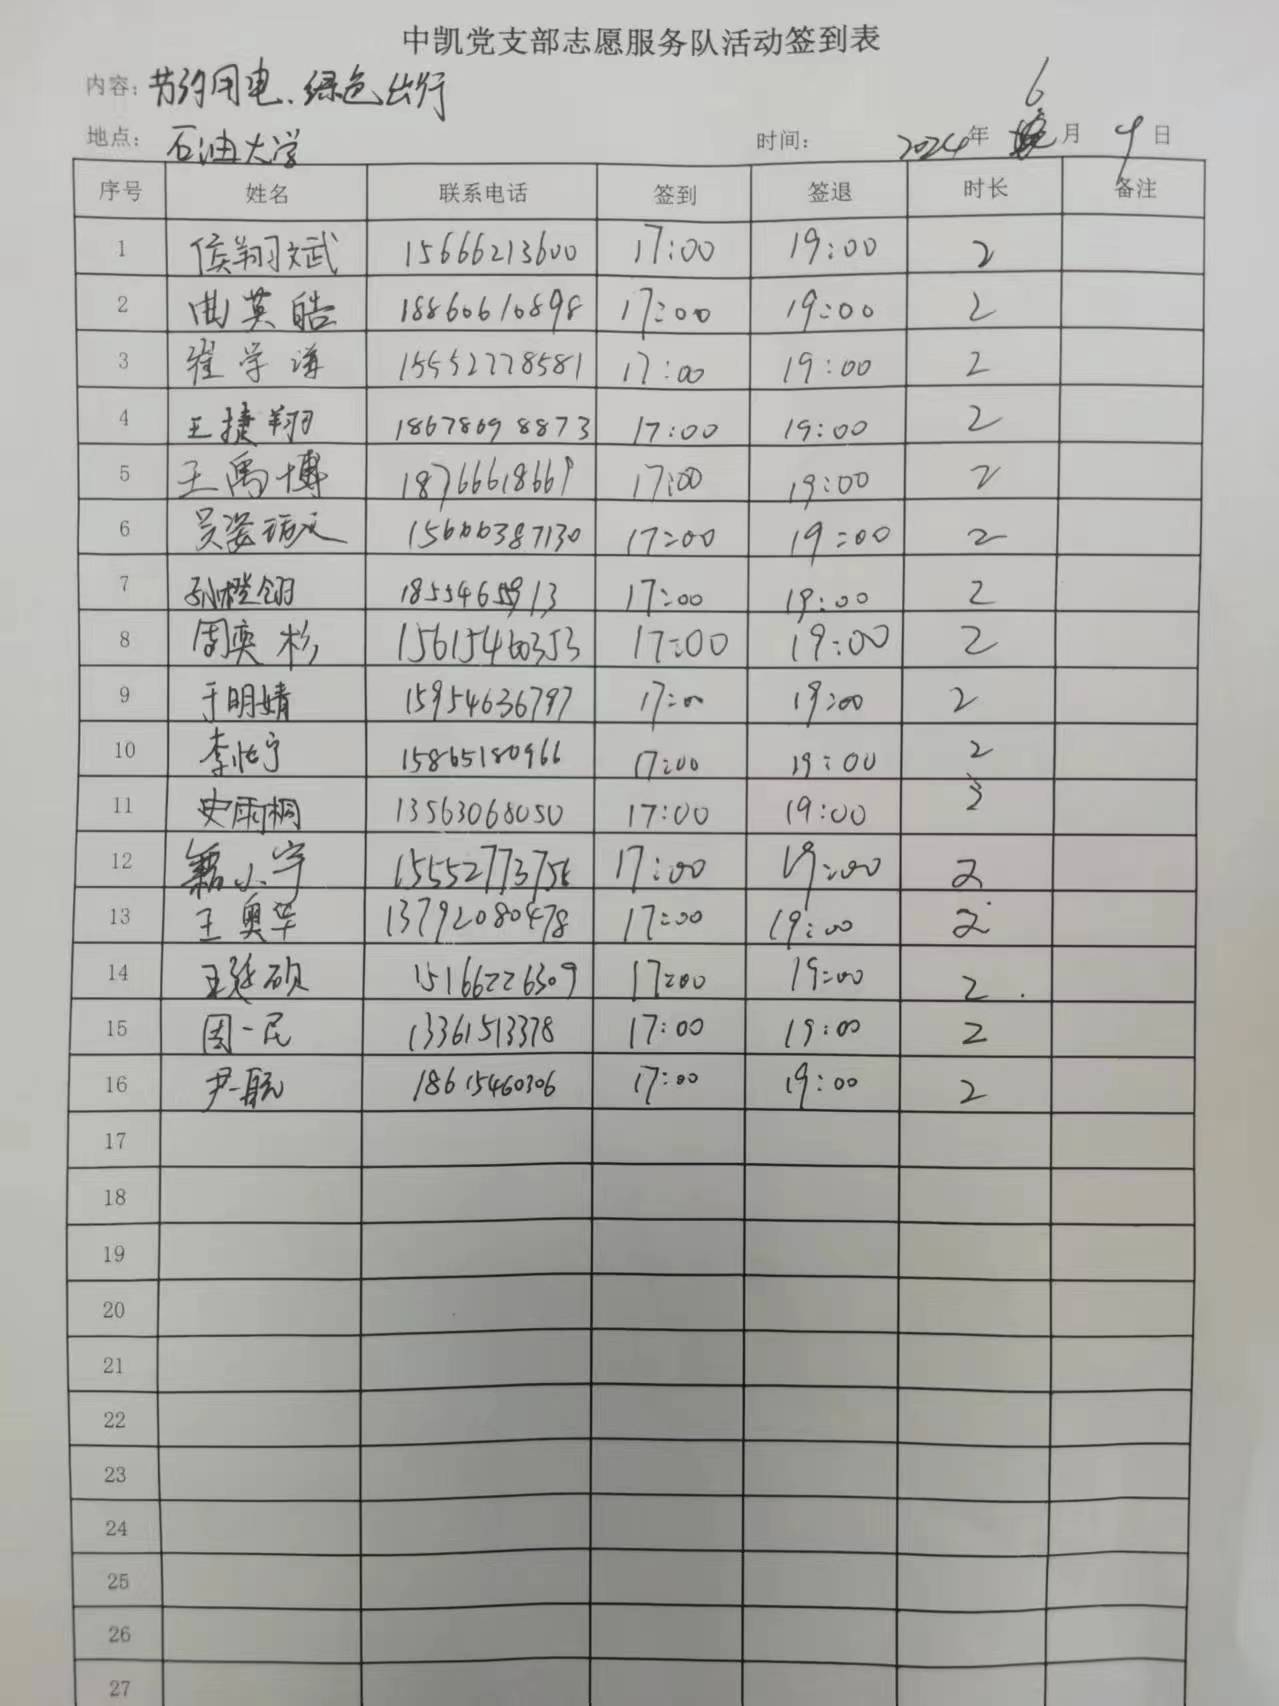 中凯党支部志愿服务队活动签到表
内容：节约用电、绿色出行
地点：石油大学 时间：2024年 6月 9日
序号 姓名 联系电话 签到 签退 时长 备注
1 侯翔斌 15666213600 17:00 19:00 2
2 曲英皓 18860610898 17:00 19:00 2
3 崔学谦 15552778581 17:00 19:00 2
4 王捷翔 18678698873 17:00 19:00 2
5 王禹博 18766618669 17:00 19:00 2
6 17:00 19:00 2
7 孙橙翎 17:00 19:00 2
8 周奕杉 15615460353 17:00 19:00 2
9 于明婧 15954636797 17:00 19:00 2
10 李怡宁 15865180966 17:00 19:00 2
11 史雨桐 13563068050 17:00 19:00
12 小宇 15552773756 17:00 19:00 2
13 王奥华 13792080478 17:00 19:00 2
14 王延硕 15166226309 17:00 19:00 2
15 周一民 13361513378 17:00 19:00 2
16 尹一航 18615460306 17:00 19:00 2
17
18
19
20
21
22
23
24
25
26
27